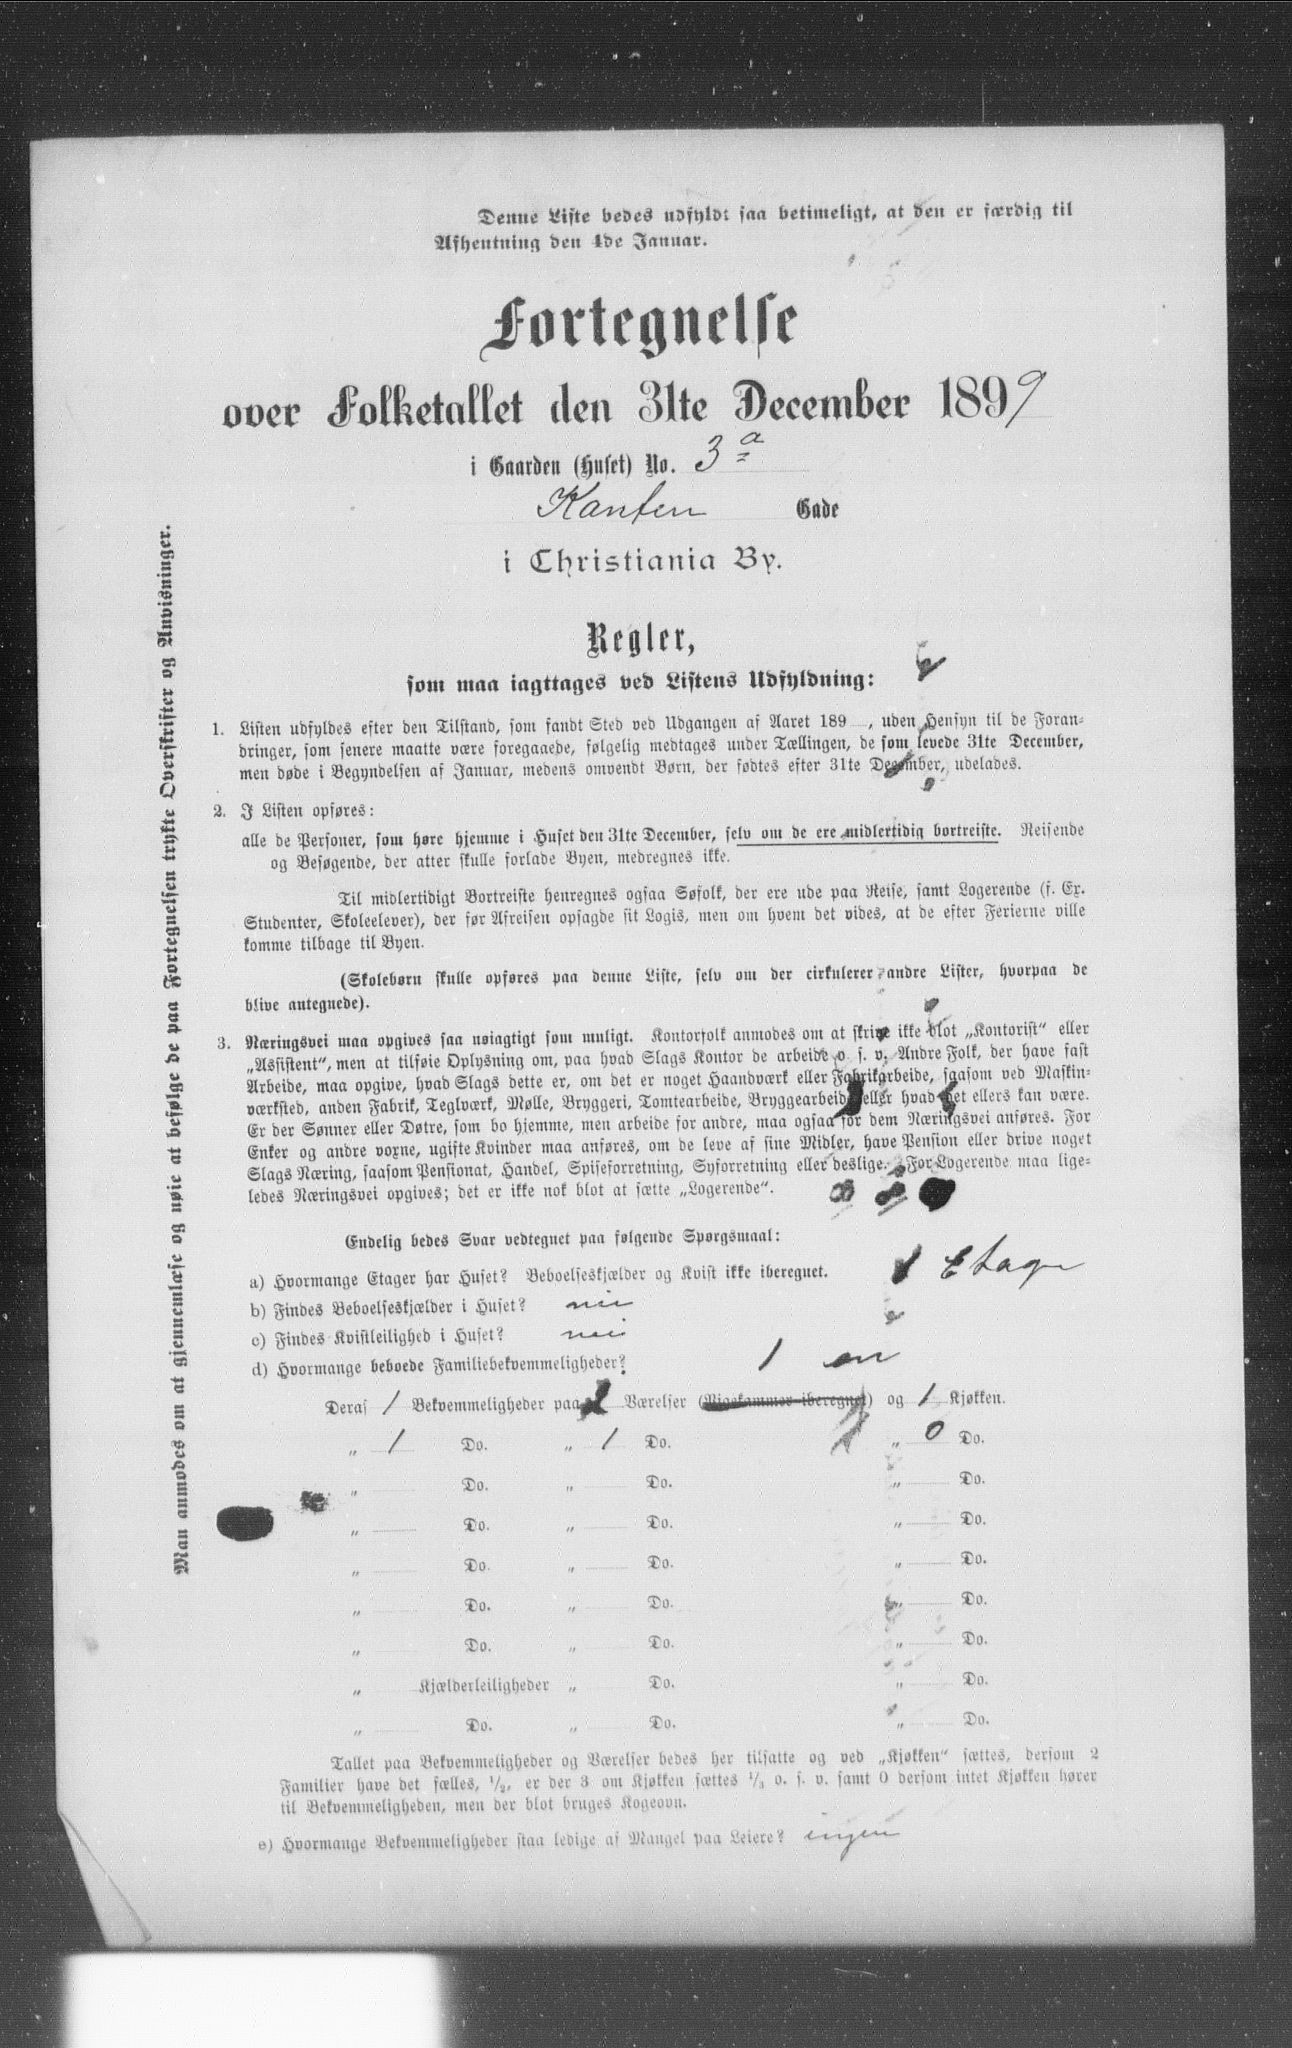 Denne Liste bedes udfyldt saa betimeligt, at den er færdig til
Afhentning den 4de Januar.
Fortegnelse
over Folketallet den 31te December 1899
i Gaarden (Huset) No. 3a
Kanten Gade
i Christiania By.
Regler,
som maa iagttages ved Listens Udfyldning:
1. Listen udfyldes efter den Tilstand, som fandt Sted ved Udgangen af Aaret 189 , uden Hensyn til de Foran-
dringer, som senere maatte være foregaaede, følgelig medtages under Tællingen, de som levede 31te December,
men døde i Begyndelsen af Januar, medens omvendt Børn, der fødtes efter 31te December, udelades.
2. I Listen opføres:
alle de Personer, som høre hjemme i Huset den 31te December, selv om de ere midlertidig bortreiste. Reisende
og Besøgende, der atter skulle forlade Byen, medregnes ikke.
Til midlertidigt Bortreiste henregnes ogsaa Søfolk, der ere ude paa Reise, samt Logerende (f. Ex.
Studenter, Skoleelever), der før Afreisen opsagde sit Logis, men om hvem det vides, at de efter Ferierne ville
komme tilbage til Byen.
(Skolebørn skulle opføres paa denne Liste, selv om der cirkulerer andre Lister, hvorpaa de
blive antegnede).
3. Næringsvei maa opgives saa nøiagtigt som muligt. Kontorfolk anmodes om at skrive ikke blot „Kontorist" eller
„Assistent", men at tilføie Oplysning om, paa hvad Slags Kontor de arbeide o. s. v. Andre Folk, der have fast
Arbeide, maa opgive, hvad Slags dette er, om det er noget Haandværk eller Fabrikarbeide, saasom ved Maskin-
værksted, anden Fabrik, Teglværk, Mølle, Bryggeri, Tomtearbeide, Bryggearbeide eller hvad det ellers kan være.
Er der Sønner eller Døtre, som bo hjemme, men arbeide for andre, maa ogsaa for dem Næringsvei anføres. For
Enker og andre voxne, ugifte Kvinder maa anføres, om de leve af sine Midler, have Pension eller drive noget
Slags Næring, saasom Pensionat, Handel, Spiseforretning, Syforretning eller deslige. For Logerende maa lige-
ledes Næringsvei opgives; det er ikke nok blot at sætte „Logerende".
Endelig bedes Svar vedtegnet paa følgende Spørgsmaal:
a) Hvormange Etager har Huset? Beboelseskjælder og Kvist ikke iberegnet. 1 Etage
b) Findes Beboelseskjælder i Huset? nei
c) Findes Kvistleilighed i Huset? nei
d) Hvormange beboede Familiebekvemmeligheder? 1 en
Deraf 1 Bekvemmeligheder paa Værelser (Pigekammer iberegnet) og 1 Kjøkken.
„ 1 Do. „ 1 Do. „ 0 Do.
„ Do. „ Do. „ Do.
„ Do. „ Do. „ Do.
„ Do. „ Do. „ Do.
„ Do. „ Do. „ Do.
„ Do. „ Do. „ Do.
„ Kjælderleiligheder „ Do. „ Do.
„ Do. „ Do. „ Do.
Tallet paa Bekvemmeligheder og Værelser bedes her tilsatte og ved „Kjøkken" sættes, dersom 2
Familier have det fælles, 1/2, er der 3 om Kjøkken sættes 1/3 o. s. v. samt 0 dersom intet Kjøkken hører
til Bekvemmeligheden, men der blot bruges Kogeovn.
e) Hvormange Bekvemmeligheder staa ledige af Mangel paa Leiere? ingen
Man anmodes om at gjennemlæse og nøie at befølge de paa Fortegnelsen trykte Overskrifter og Anvisninger.